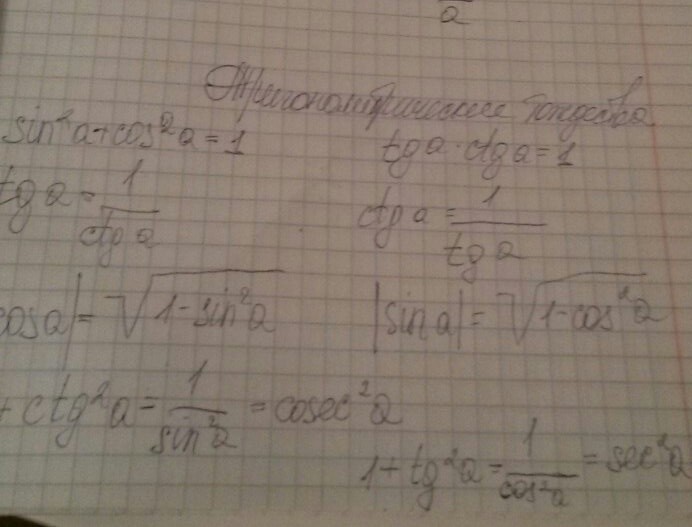 a
Тригонометрические тождества
sin²a+cos²a=1
tga·ctga=1
tga=1/ctga
ctga=1/tga
cosa|=√1-sin²a
|sina|=√1-cos²a
+ctg²a=1/sin²a=cosec²a
1+tg²a=1/cos²a=sec²a